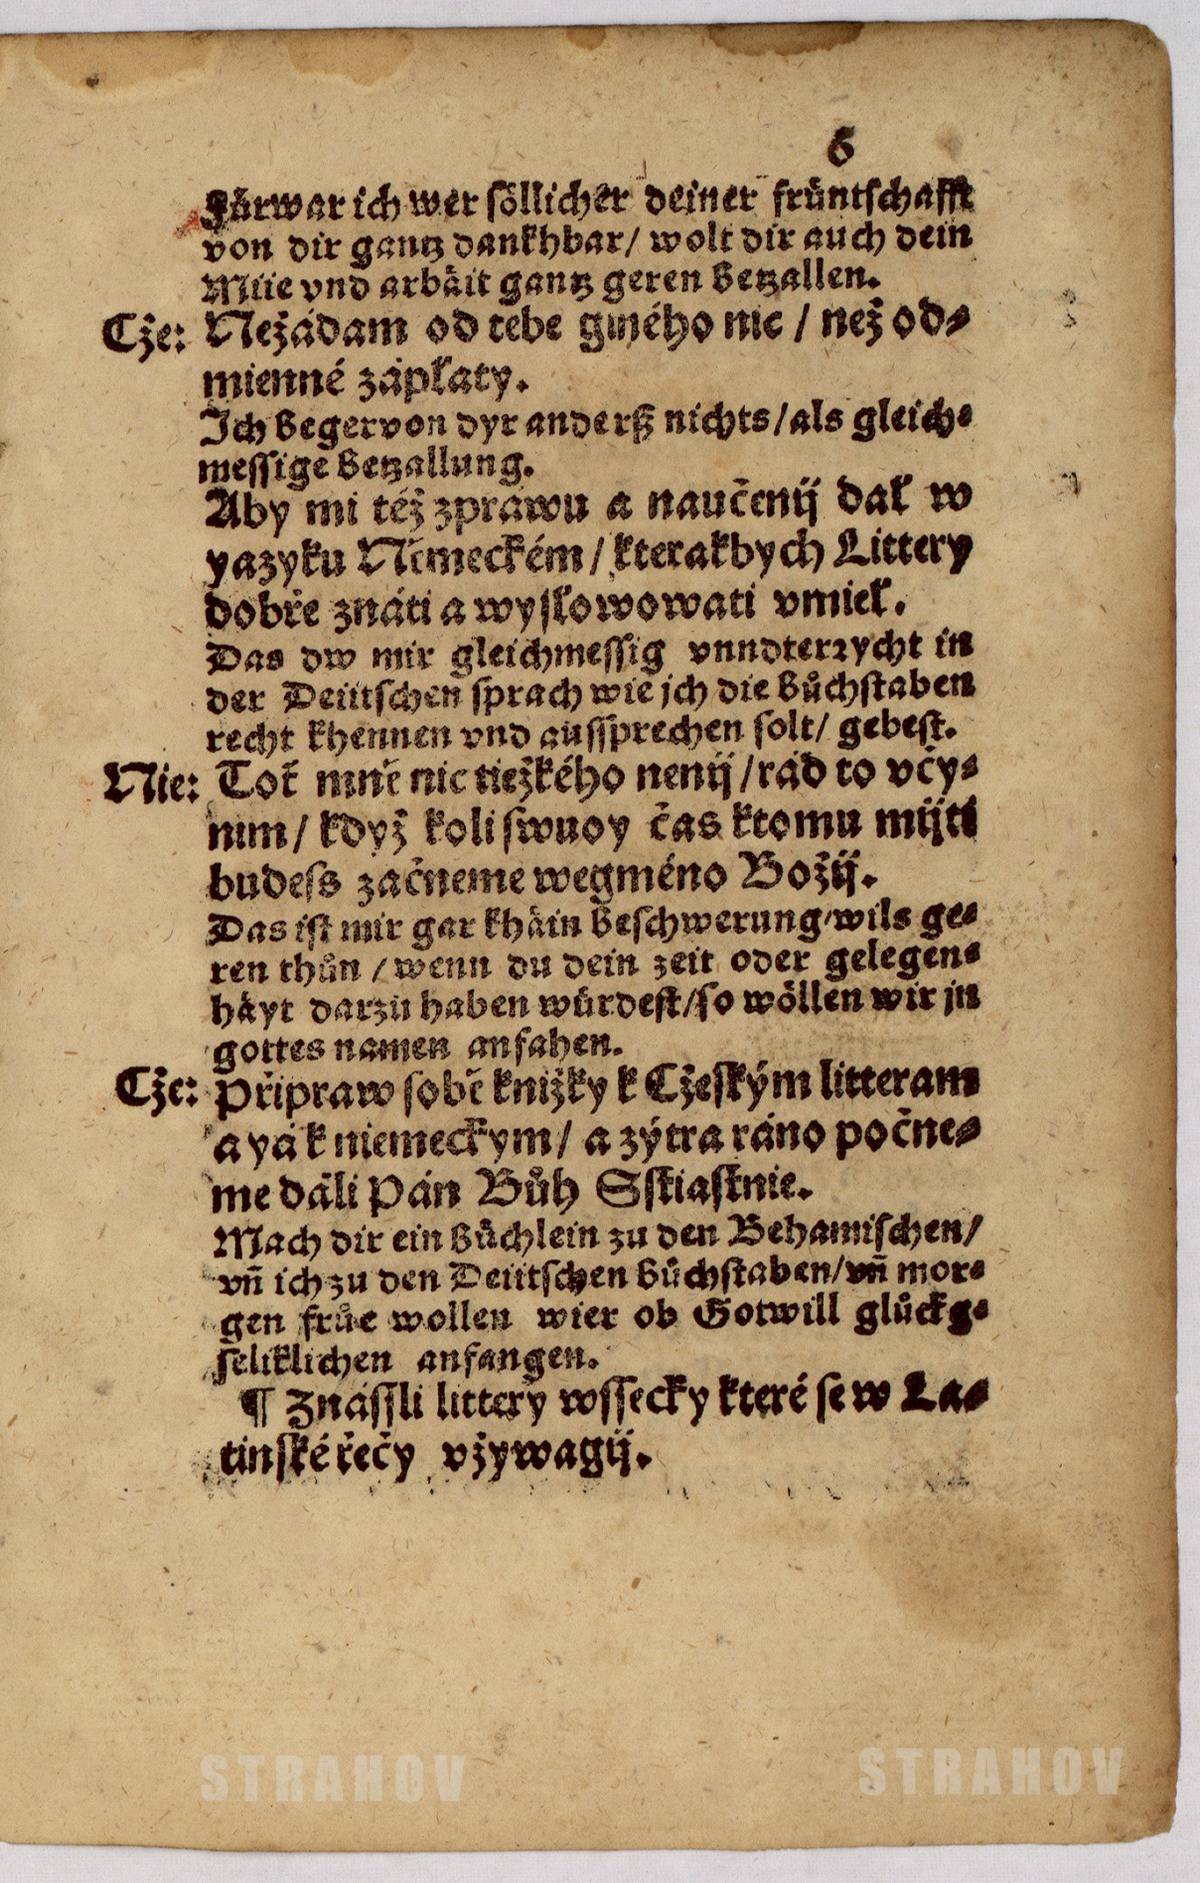 6
Fürwar ich wer söllicher deiner früntschafft
von dir gantz dankhbar/ wolt dir auch dein
Müe vnd arbäit gantz geren Betzallen.
Cže: Nežádam od tebe giného nic / než od⸗
mienné záplaty.
Ich Beger von dyr anderß nichts/als gleich⸗
messige Betzallung.
Aby mi též zpráwu a naučenij dal w
yazyku Německém/ kterakbych Littery
dobře znáti a wyslowowati vmiel.
Das dw mir gleichmessig vnndterrycht in
der Deütschen sprach wie jch die Bůchstaben
recht khennen vnd aussprechen solt/ gebest.
Nie: Toť mně nic tiežkého nenij/rád to včy⸗
nim/ když koli swuoy čas ktomu mijti
budess začneme wegméno Božij.
Das ist mir gar khäin Beschwerung/wils ge⸗
ren thůn / wenn du dein zeit oder gelegen⸗
häyt darzü haben würdest/so wöllen wir jn
gottes namen anfahen.
Cže: Připraw sobě knižky k Cžeským litteram
a yá k niemeckym/ a zýtra ráno počne⸗
me dáli Pán Bůh Sstiastnie.
Mach dir ein Büchlein zu den Behamischen/
vñ ich zu den Deütschen Bůchstaben/vñ mor⸗
gen früe wollen wier ob Gotwill glückg⸗
seliklichen anfangen.
¶ Znássli littery wssecky které se w La⸗
tinské řečy vžywagij.
STRAHOV STRAHOV